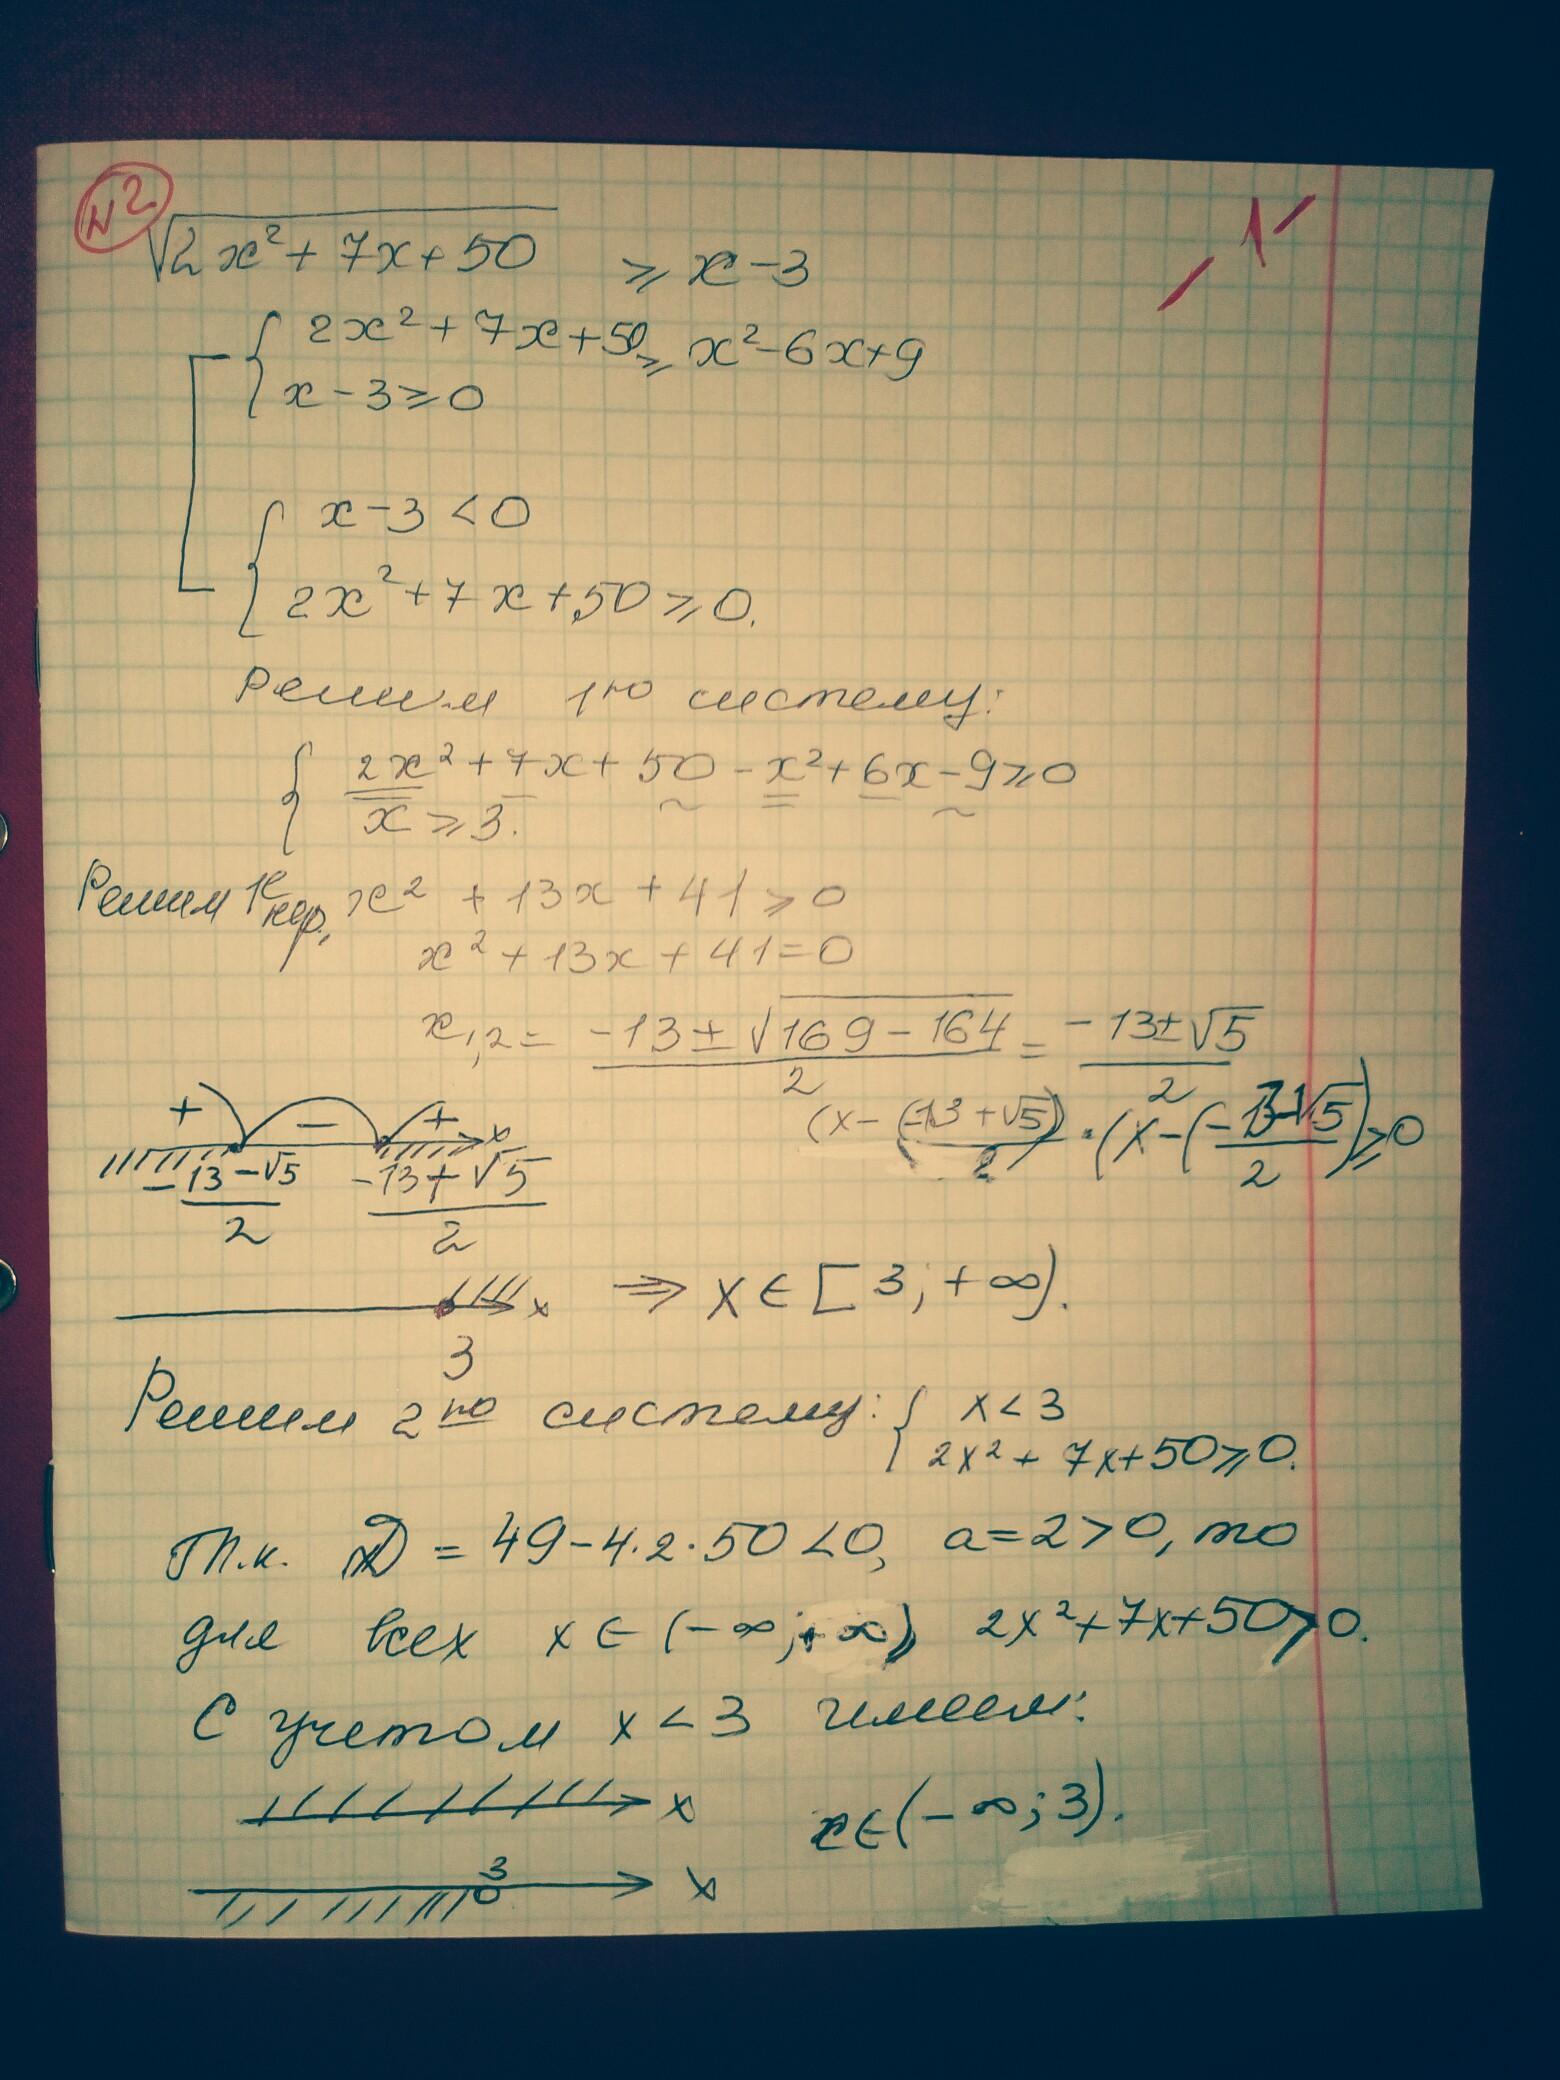 №2
√2x²+7x+50 ⩾ x-3
2x²+7x+50 ⩾ x²-6x+9
x-3⩾0
x-3<0
2x²+7x+50⩾0.
Решим 1ую систему:
2x²+7x+50-x²+6x-9⩾0
x⩾3.
Решим 1е нер. x²+13x+41⩾0
x²+13x+41=0
x₁,₂ = (-13±√169-164)/2 = (-13±√5)/2
(x-(-13+√5)/2)·(x-(-13-√5)/2)⩾0
+ - + x
(-13-√5)/2 (-13+√5)/2
x ⇒ x∈[3;+∞).
3
Решим 2ую систему: { x<3
2x²+7x+50⩾0.
Т.к. D = 49-4·2·50<0, a=2>0, то
для всех x∈(-∞;+∞) 2x²+7x+50>0.
С учетом x<3 имеем:
x x∈(-∞;3).
3 x